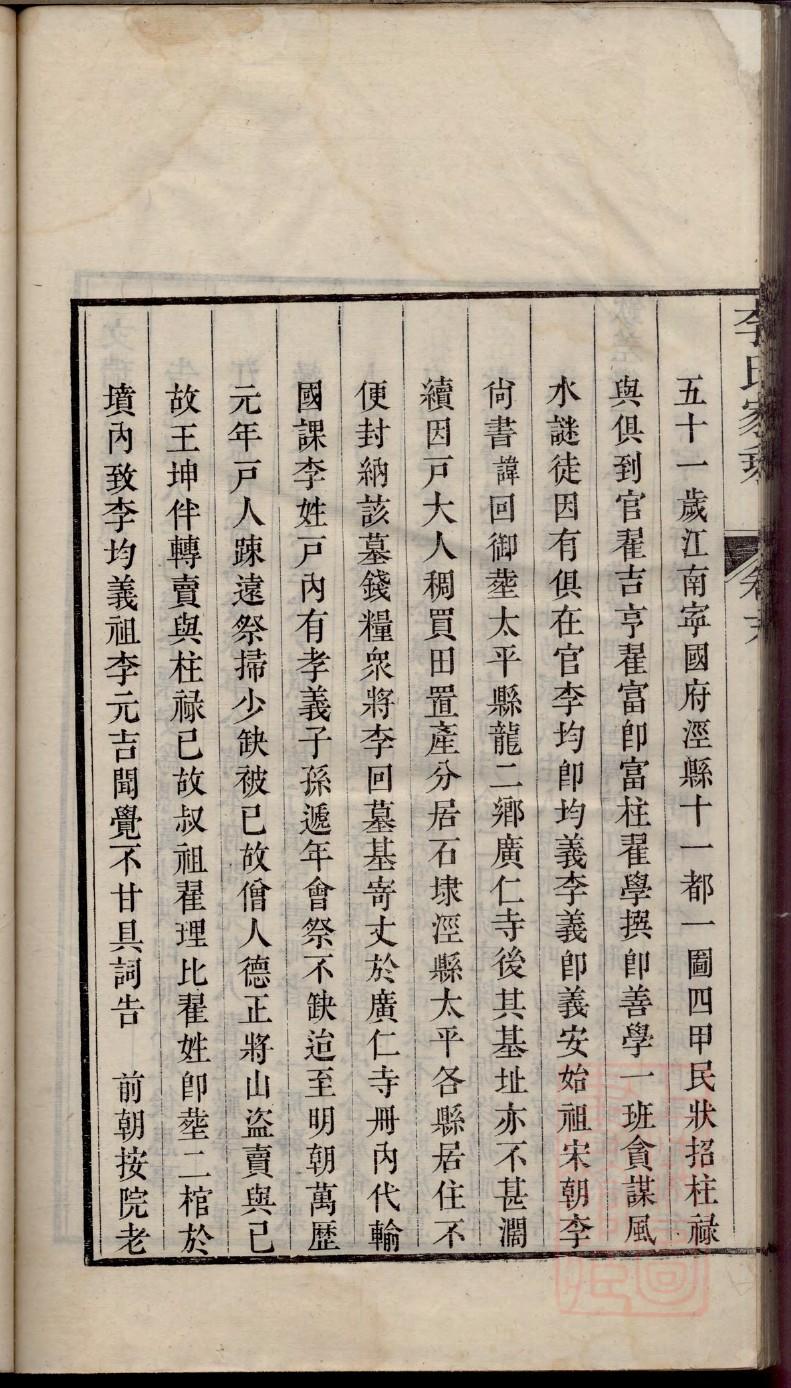 李氏家乘 卷末
五十一歲江南寧國府涇縣十一都一圖四甲民狀招柱祿
與俱到官翟吉亨翟富卽富柱翟學撰卽善學一班貪謀風
水謎徒因有俱在官李均卽均義李義卽義安始祖宋朝李
尙書諱回御塟太平縣龍二鄕廣仁寺後其基址亦不甚濶
續因戸大人稠買田置產分居石埭涇縣太平各縣居住不
便封納該墓錢糧衆將李回墓基寄丈於廣仁寺册內代輸
國課李姓戸內有孝義子孫遞年會祭不缺迨至明朝萬歷
元年戸人踈遠祭掃少缺被已故僧人德正將山盜賣與已
故王坤伴轉賣與柱祿已故叔祖翟理比翟姓卽塟二棺於
墳內致李均義祖李元吉聞覺不甘具詞告　前朝按院老